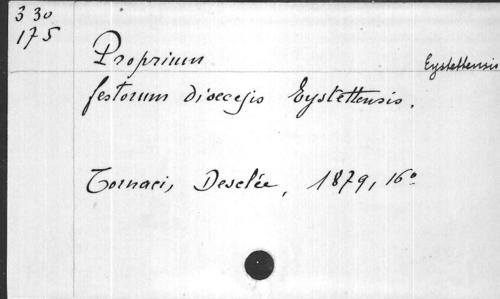 330
175
Proprium
Eystettensis
festorum dioecesis Eystettensis.
Tornaci, Desclée, 1879, 16°